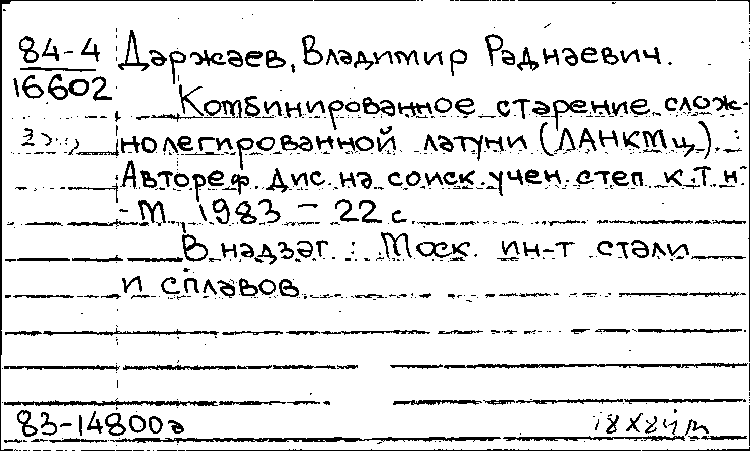 84-4 Даржаев, Владимир Раднаевич.
16602
Комбинированное старение слож-
нолегированной латуни (ЛАНКМц). :
Автореф. дис. на соиск. учен. степ. к.т.н.
- М., 1983 - 22 с.
В надзаг.: Моск. ин-т стали
и сплавов
83-14800а